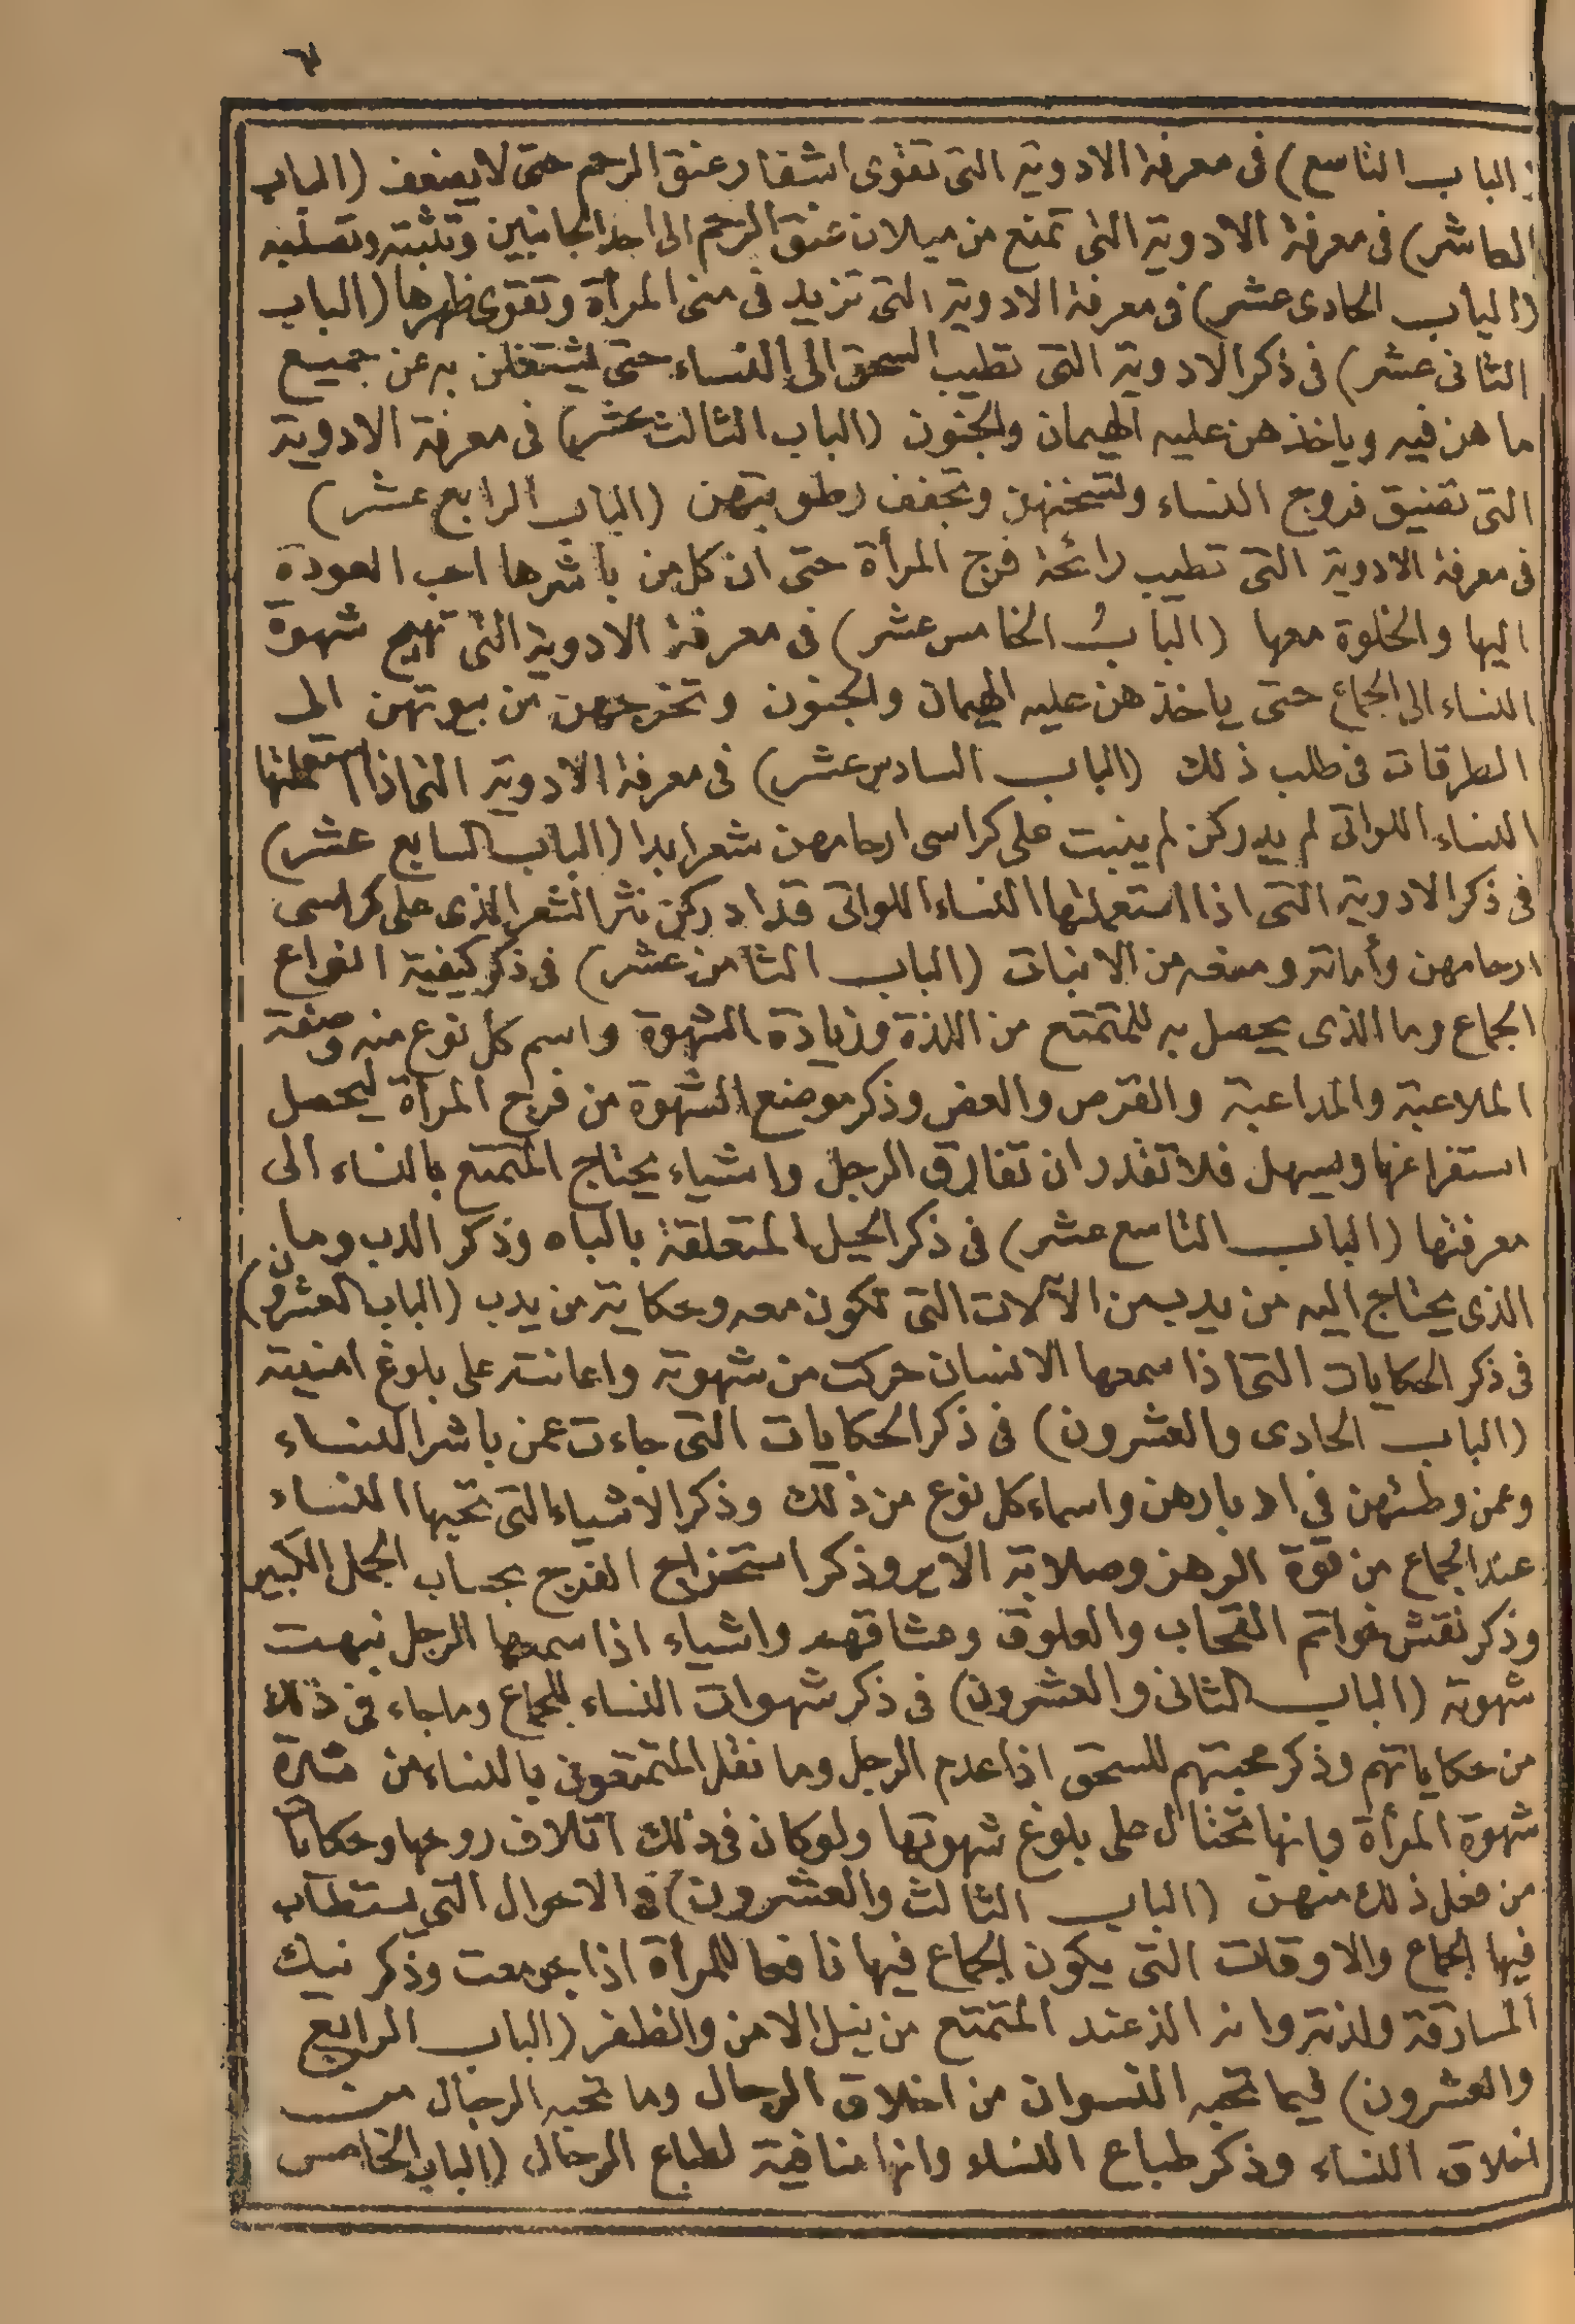 ٦
(الباب التاسع) فى معرفة الادوية التى تقوى اشفار عنق الرحم حتى لا يضعف (الباب
العاشر) فى معرفة الادوية التى تمنع من ميلان عنق الرحم الى احد الجانبين وتثبته وتصلبه
(الباب الحادى عشر) فى معرفة الادوية التى تزيد فى منى المرأة وتقوى ظهرها (الباب
الثانى عشر) فى ذكر الادوية التى تطيب السحق الى النساء حتى يشتغلن به عن جميع
ما هن فيه وياخذ هن عليه الهيمان والجنون (الباب الثالث عشر) فى معرفة الادوية
التى تضيق فروج النساء وتسخنهن وتجفف رطوبتهن (الباب الرابع عشر)
فى معرفة الادوية التى تطيب رائحة فرج المرأة حتى ان كل من باشرها احب العودة
اليها والخلوة معها (الباب الخامس عشر) فى معرفة الادوية التى تهيج شهوة
النساء الى الجماع حتى ياخذ هن عليه الهيمان والجنون وتخرجهن من بيوتهن الى
الطرقات فى طلب ذلك (الباب السادس عشر) فى معرفة الادوية التى اذا استعملنها
النساء اللواتى لم يدركن لم ينبت على كراسى ارحامهن شعر ابدا (الباب السابع عشر)
فى ذكر الادوية التى اذا استعملنها النساء اللواتى قد ادركن نثر الشعر الذى على كراسى
ارحامهن وأماته ومنعه من الانبات (الباب الثامن عشر) فى ذكر كيفية انواع
الجماع وما الذى يحصل به للمتمتع من اللذة وزيادة الشهوة واسم كل نوع منه وصفة
الملاعبة والمداعبة والقرص والعض وذكر موضع الشهوة من فرج المرأة ليحصل
استفراغها ويسهل فلا تقدر ان تفارق الرجل واشياء يحتاج المتمتع بالنساء الى
معرفتها (الباب التاسع عشر) فى ذكر الحيل المتعلقة بالباه وذكر الدب وما
الذى يحتاج اليه من يدب من الآلات التى تكون معه وحكاية من يدب (الباب العشرون)
فى ذكر الحكايات التى اذا سمعها الانسان حركت من شهوته واعانته على بلوغ امنيته
(الباب الحادى والعشرون) فى ذكر الحكايات التى جاءت عمن باشر النساء
وعمن وطئهن في ادبارهن واسماء كل نوع من ذلك وذكر الاشياء التى تحبها النساء
عند الجماع من قوة الرهز وصلابة الاير وذكر استخراج الفرج بحساب الجمل الكبير
وذكر نقش خواتم القحاب والعلوق وعشاقهم واشياء اذا سمعها الرجل نبهت
شهوته (الباب الثانى والعشرون) فى ذكر شهوات النساء للجماع وماجاء فى ذلك
من حكاياتهم وذكر محبتهم للسحق اذا عدم الرجل وما نقله المتمتعون بالنساء من شدة
شهوة المرأة وانها تحتال على بلوغ شهوتها ولو كان فى ذلك اتلاف روحها وحكايات
من فعل ذلك منهن (الباب الثالث والعشرون) فى الاحوال التى يستطاب
فيها الجماع والاوقات التى يكون الجماع فيها نافعا للمرأة اذا جومعت وذكر نيك
المسارقة ولذته وانه الذ عند المتمتع من نيل الامن والظفر (الباب الرابع
والعشرون) فيما تحبه النسوان من اخلاق الرجال وما تحبه الرجال من
اخلاق النساء وذكر طباع النساء وانها منافية لطباع الرجال (الباب الخامس